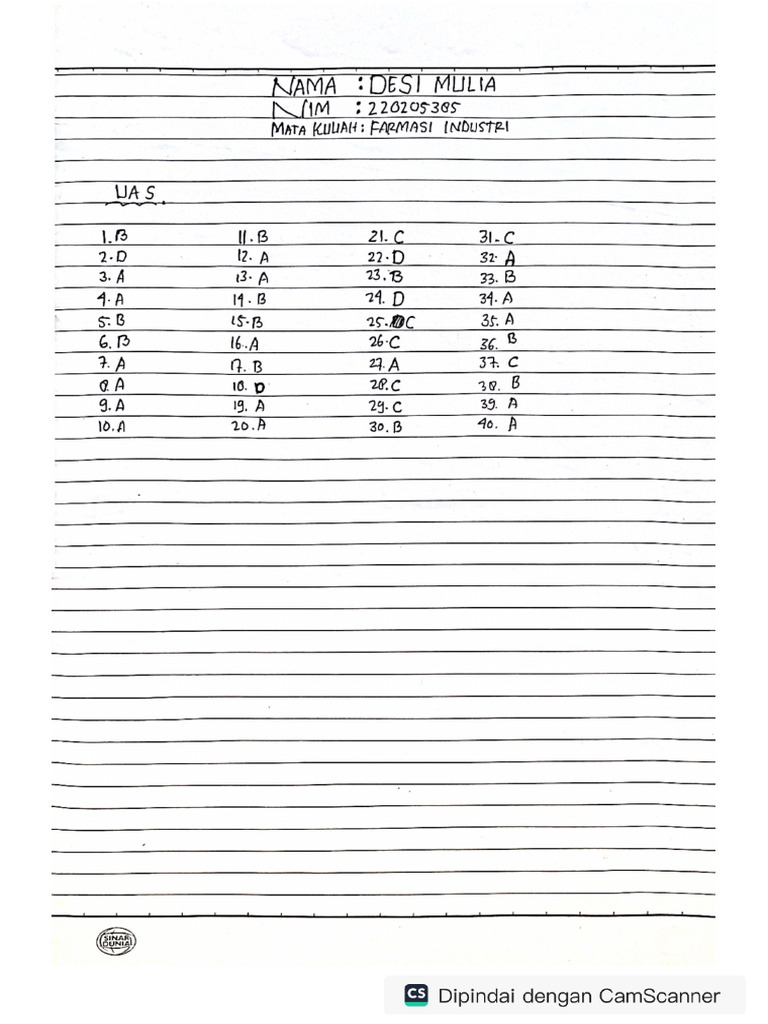 NAMA : DESI MULIA
NIM : 220205305
MATA KULIAH : FARMASI INDUSTRI
UAS.
1. B 11. B 21. C 31. C
2. D 12. A 22. D 32. A
3. A 13. A 23. B 33. B
4. A 14. B 24. D 34. A
5. B 15. B 25. C 35. A
6. B 16. A 26. C 36. B
7. A 17. B 27. A 37. C
8. A 18. D 28. C 38. B
9. A 19. A 29. C 39. A
10. A 20. A 30. B 40. A
SINAR DUNIA
CS Dipindai dengan CamScanner